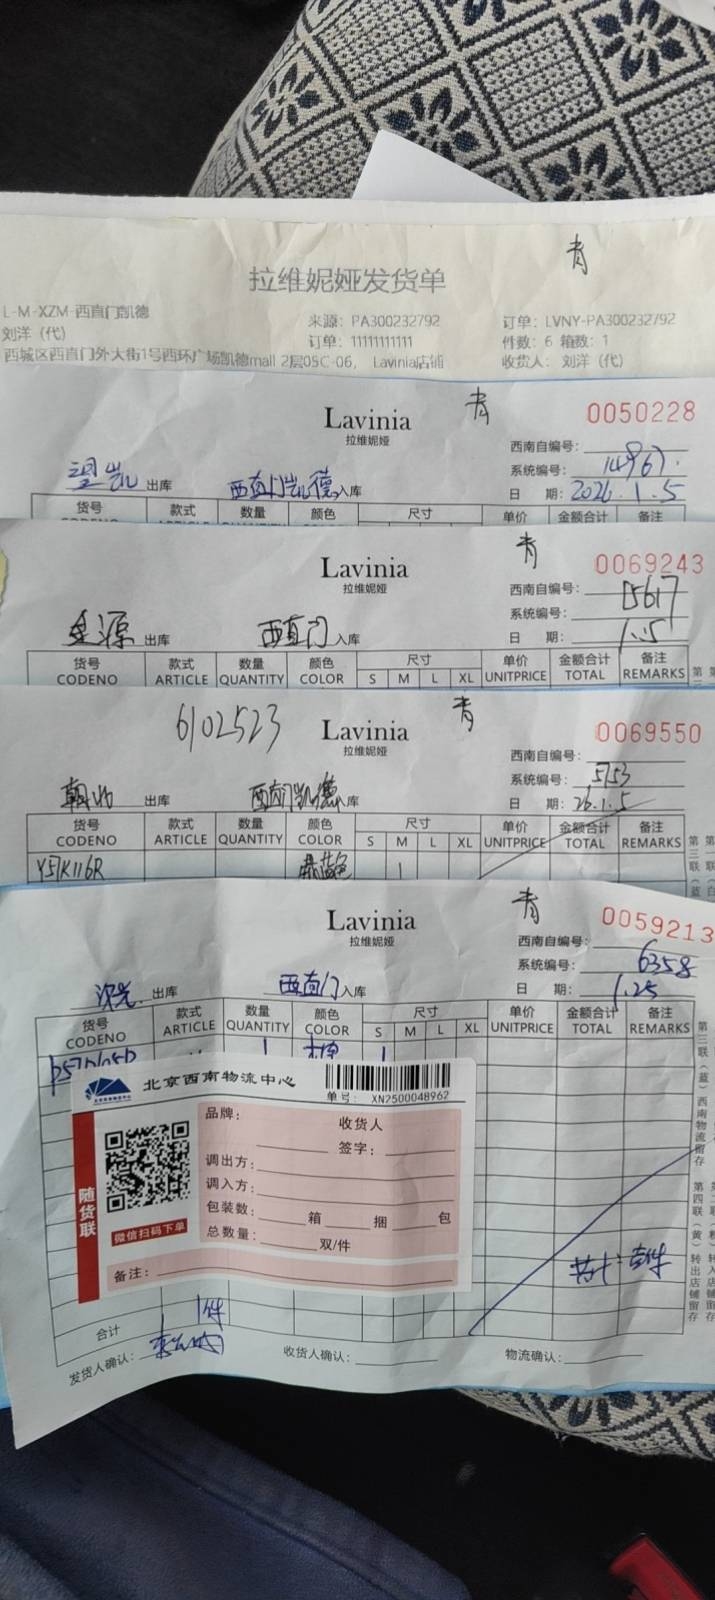 青
拉维妮娅发货单
L-M-XZM-西直门凯德
来源: PA300232792
订单: LVNY-PA300232792
刘洋 (代)
订单: 11111111111
件数: 6 箱数: 1
西城区西直门外大街1号西环广场凯德mall 2层05C-06, Lavinia店铺
收货人: 刘洋 (代)
Lavinia
拉维妮娅
青
0050228
西南自编号:
系统编号: 14967.
望凯 出库 西直门凯德 入库
日 期: 2026.1.5
货号 款式 数量 颜色 尺寸 单价 金额合计 备注
Lavinia
拉维妮娅
青
0069243
西南自编号:
系统编号: 15617
出库 西直门 入库
日 期: 1.5
货号 款式 数量 颜色 尺寸 单价 金额合计 备注
CODENO ARTICLE QUANTITY COLOR S M L XL UNITPRICE TOTAL REMARKS
6102523
Lavinia
拉维妮娅
青
0069550
西南自编号:
系统编号: 5153
出库 西直门凯德 入库
日 期: 26.1.5
货号 款式 数量 颜色 尺寸 单价 金额合计 备注
CODENO ARTICLE QUANTITY COLOR S M L XL UNITPRICE TOTAL REMARKS
Lavinia
拉维妮娅
青
0059213
西南自编号:
系统编号: 6358
出库 西直门 入库
日 期: 1.25
货号 款式 数量 颜色 尺寸 单价 金额合计 备注
CODENO ARTICLE QUANTITY COLOR S M L XL UNITPRICE TOTAL REMARKS
1 1
北京西南物流中心
单号: XN2500048962
品牌: 收货人
签字:
调出方:
调入方:
包装数: 箱 捆 包
总数量: 双/件
随货联
微信扫码下单
备注:
第三联(蓝)西南物流留存
第四联(黄)转出店铺留存
合计 1件
发货人确认: 收货人确认: 物流确认: